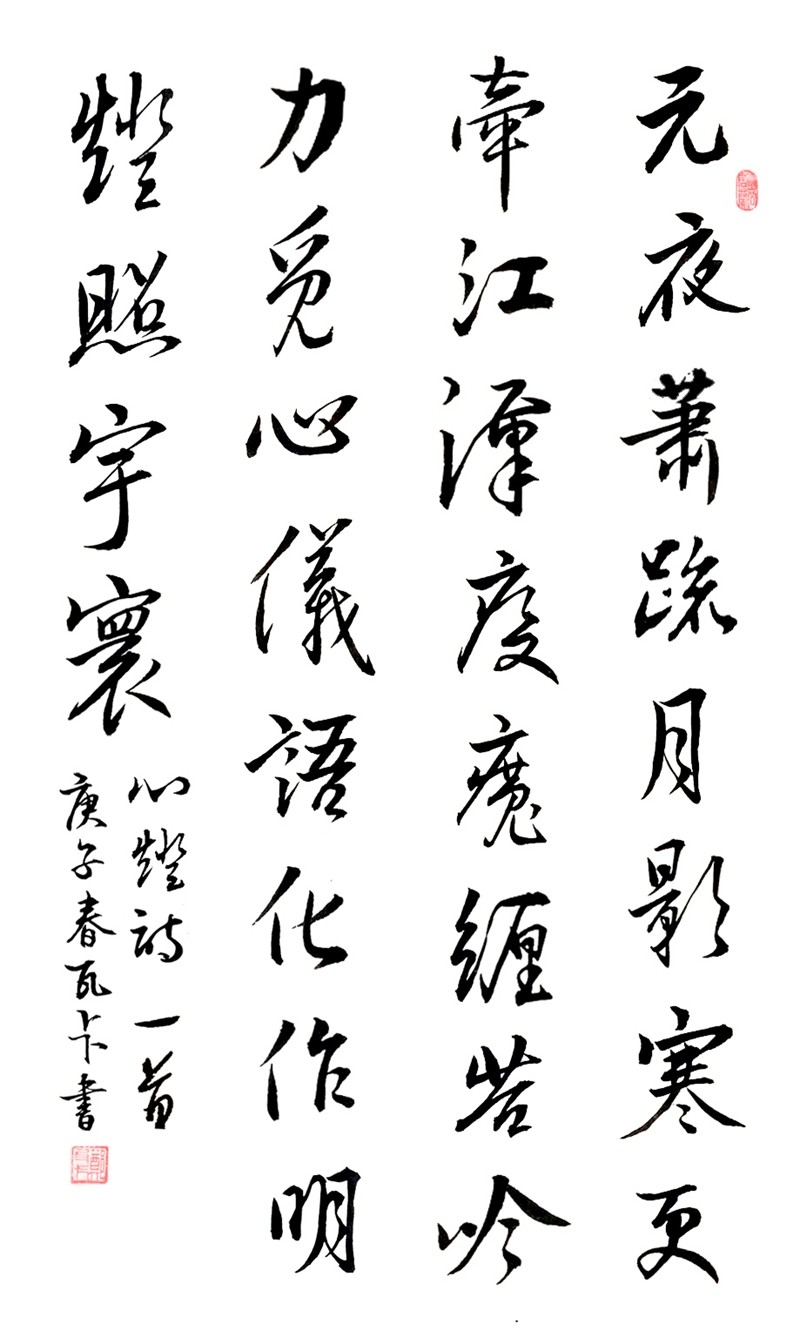 元夜蕭疏月影寒更
牽江漢疫魔纏苦吟
力覓心儀語化作明
燈照宇寰
心燈詩一首
庚子春瓦卞書